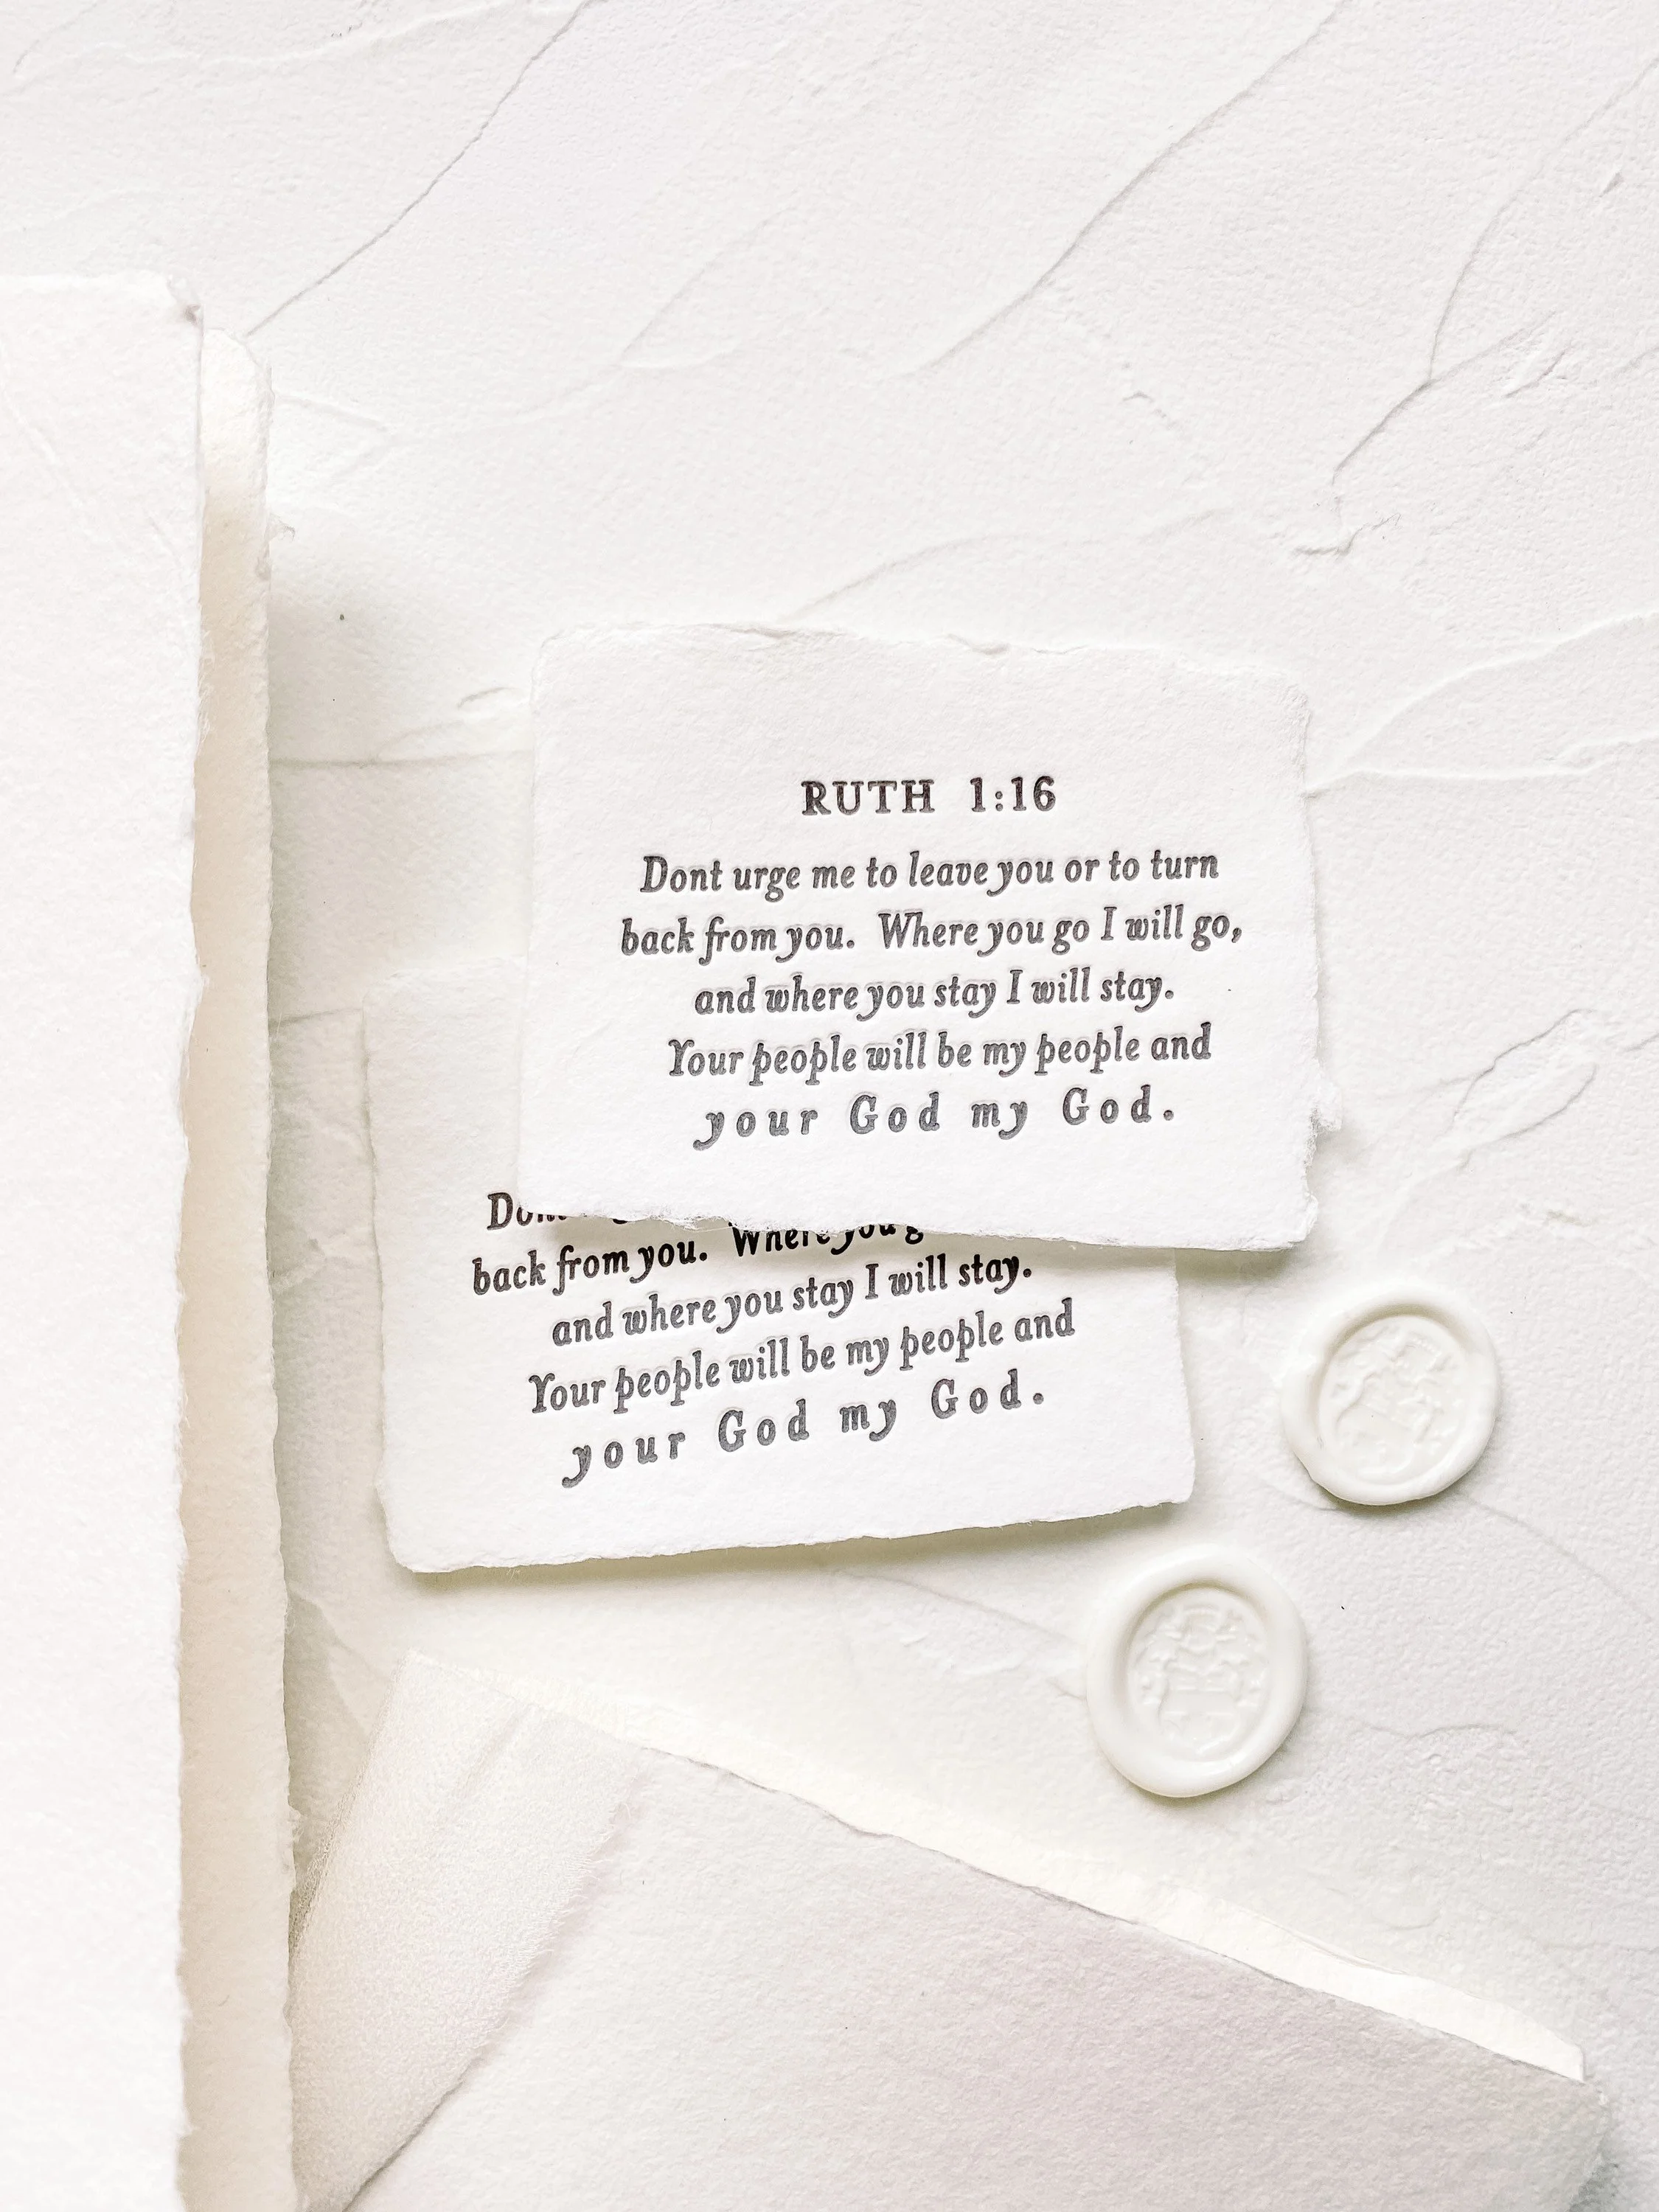 RUTH 1:16
Dont urge me to leave you or to turn
back from you. Where you go I will go,
and where you stay I will stay.
Your people will be my people and
your God my God.
back from you. Where you g
and where you stay I will stay.
Your people will be my people and
your God my God.